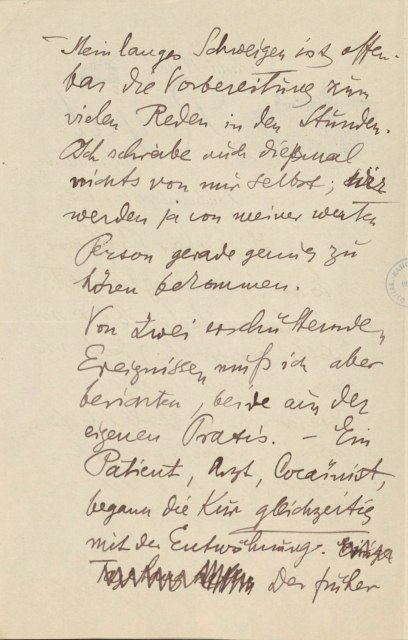 Mein langes Schweigen ist offen-
bar die Vorbereitung zum
vielen Reden in den Stunden.
Ich schreibe auch diesmal
nichts von mir selbst; wir
werden ja von meiner werten
Person gerade genug zu
hören bekommen.
Von zwei erschütternden
Ereignissen muß ich aber
berichten, beide aus der
eigenen Praxis. – Ein
Patient, Arzt, Cocaïnist,
begann die Kur gleichzeitig
mit der Entwöhnung.
Der früher